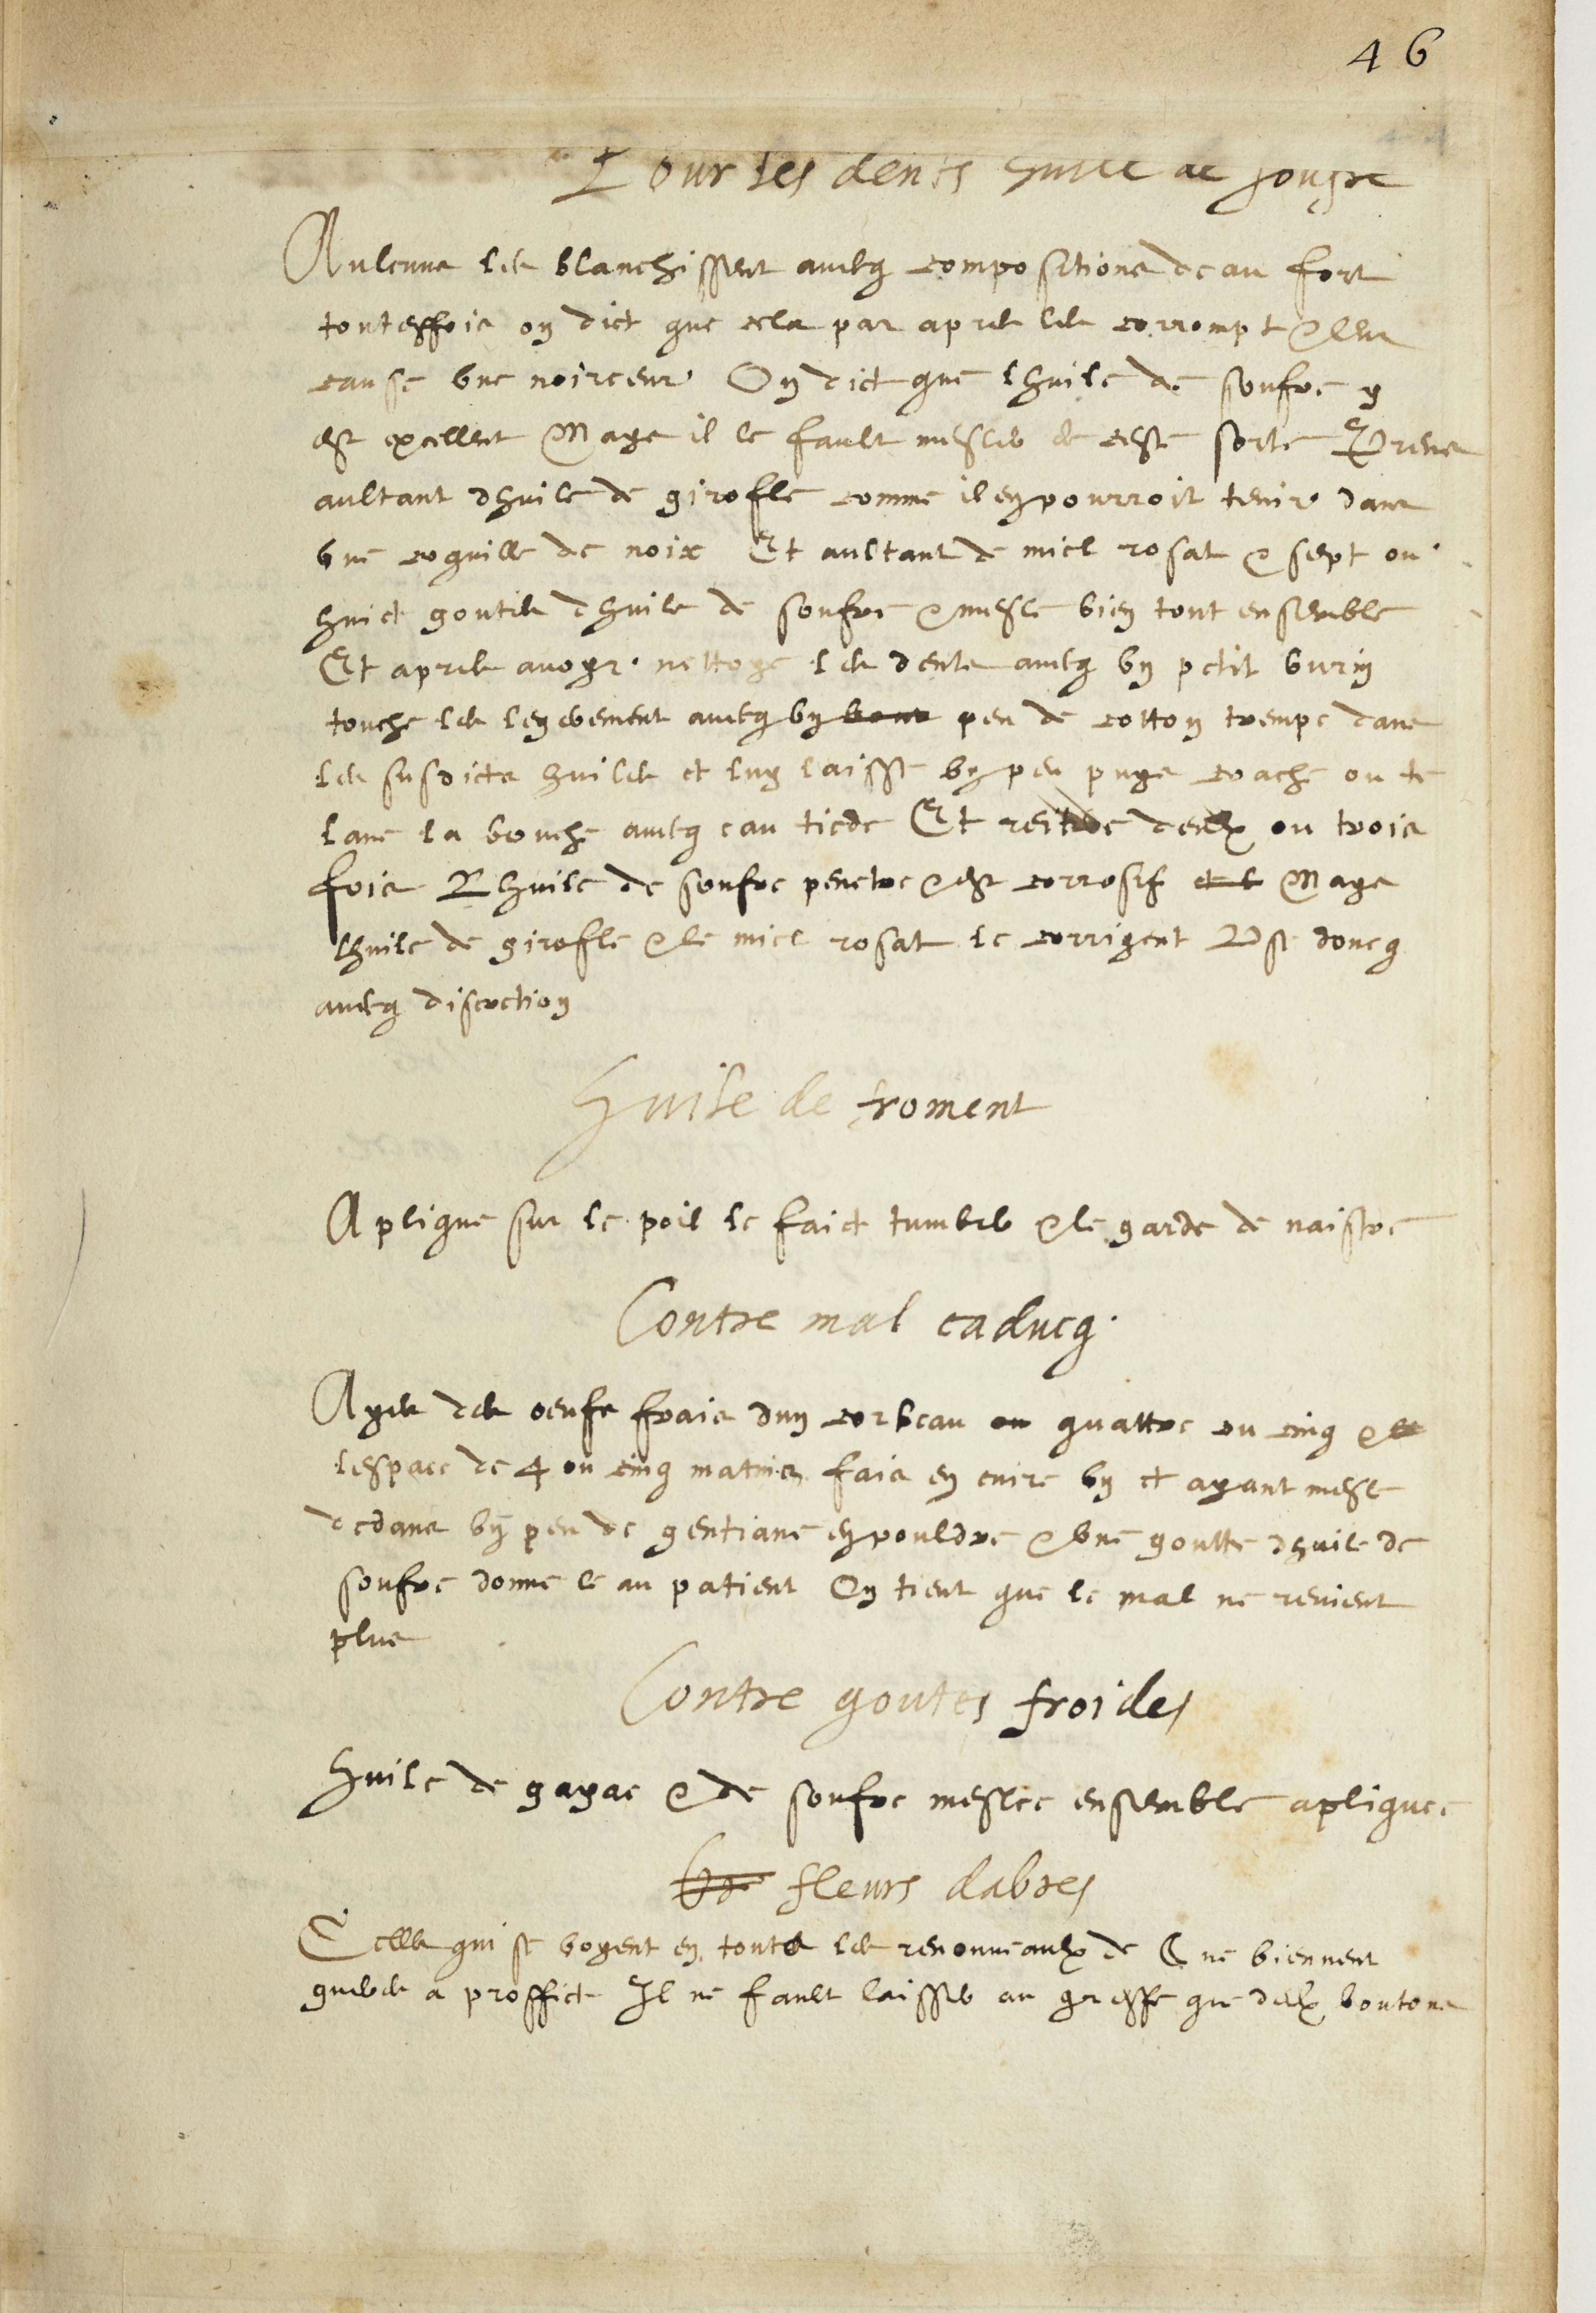 46
Pour les dents huile de soufre
Aulcuns les blanchissent avecq compositions deau fort
touteffois on dict que cela par apres les corrompt & leur
cause une noirceur On dict que lhuile de soufre y
est excellent Mays il le fault mesler de ceste sorte Prens
aultant dhuile de girofle comme il en pourroit tenir dans
une coquille de noix Et aultant de miel rosat & sept ou
huict gouttes dhuile de soufre & mesle bien tout ensemble
Et apres avoyr nettoye les dents avecq un petit burin
touche les legerement avecq un bout peu de cotton trempe dans
les susdicts huiles et luy laisse un peu puys crache ou te
lave la bouche avecq eau tiede Et reitere deulx ou trois
fois Lhuile de soufre penetre & est corrosif et l Mays
lhuile de girofle & le miel rosat le corrigent Use doncq
avecq discretion
Huile de froment
Aplique sur le poil le faict tumber & le garde de naistre
Contre mal caducq
Ayes des oeufs frais dun corbeau ou quattre ou cinq & le
lespace de 4 ou cinq matins fais en cuire un et ayant mesle
dedans un peu de gentiane en pouldre & une goutte dhuile de
soufre donne le au patient On tient que le mal ne revient
plus
Contre goutes froides
Huile de gayac & de soufre meslee ensemble apliquee
fleurs dabres
Celles qui se voyent en toutes les renouveaulx de ☾ ne viennent
gueres a proffict Il ne fault laisser au greffe que deulx boutons